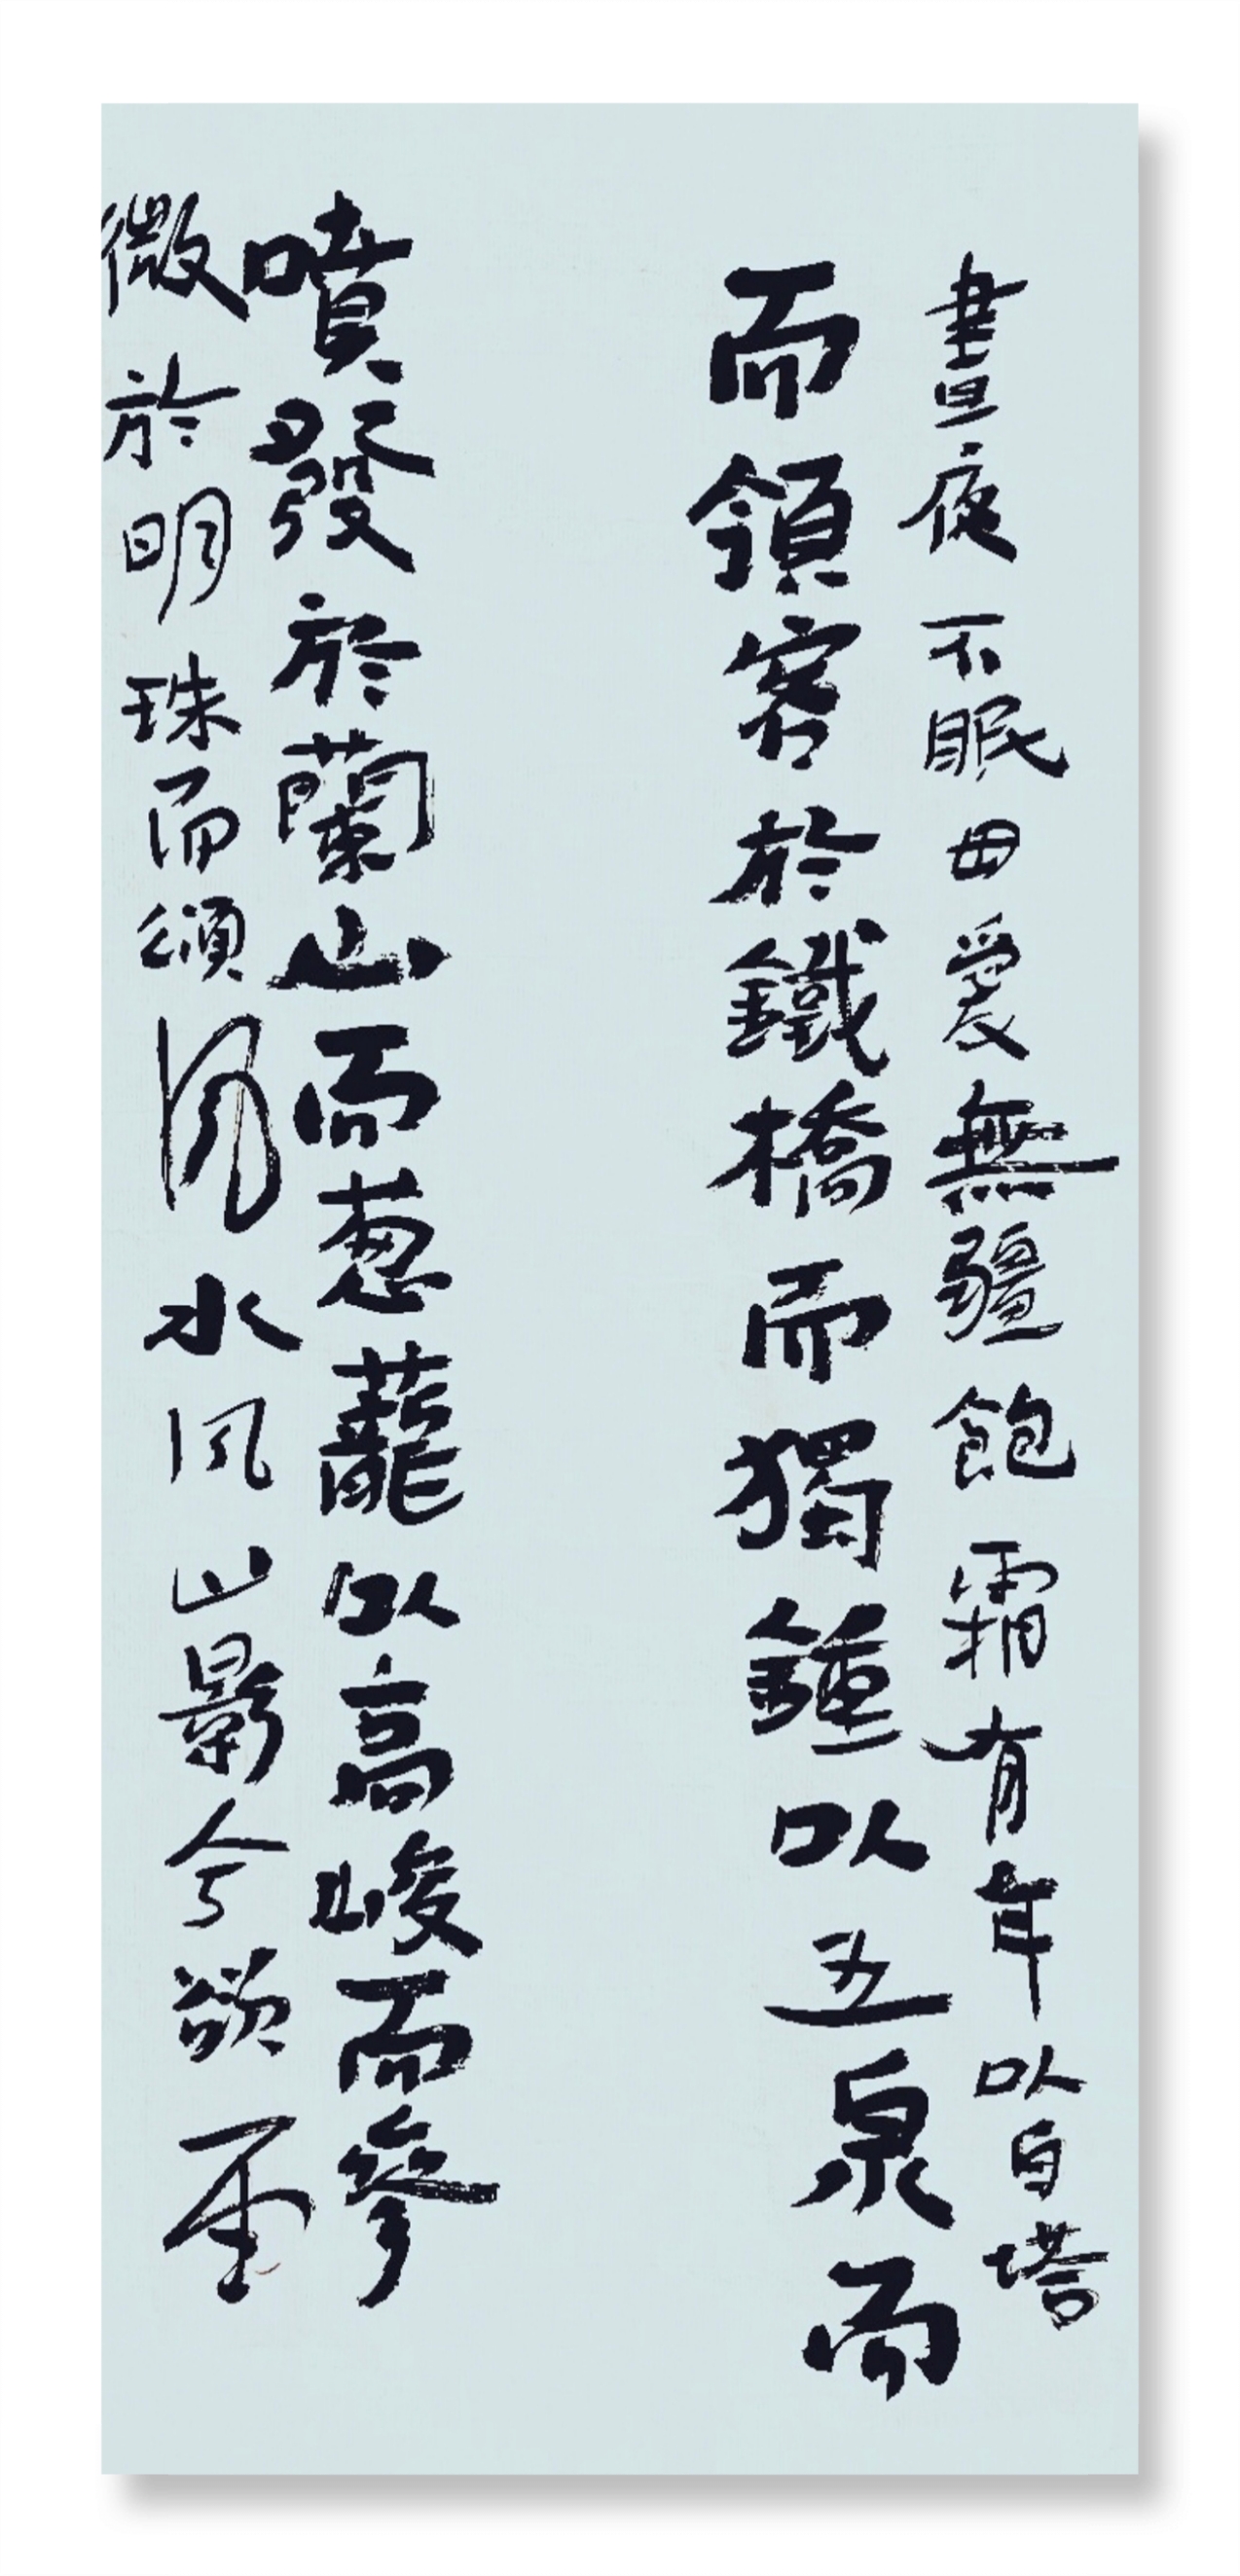 晝夜不眠母愛無疆飽霜有年以白塔
而領客於鐵橋而獨鍾以五泉而
噴發於蘭山而葱蘢以高峻而參
微於明珠而頌風水風山影今欲